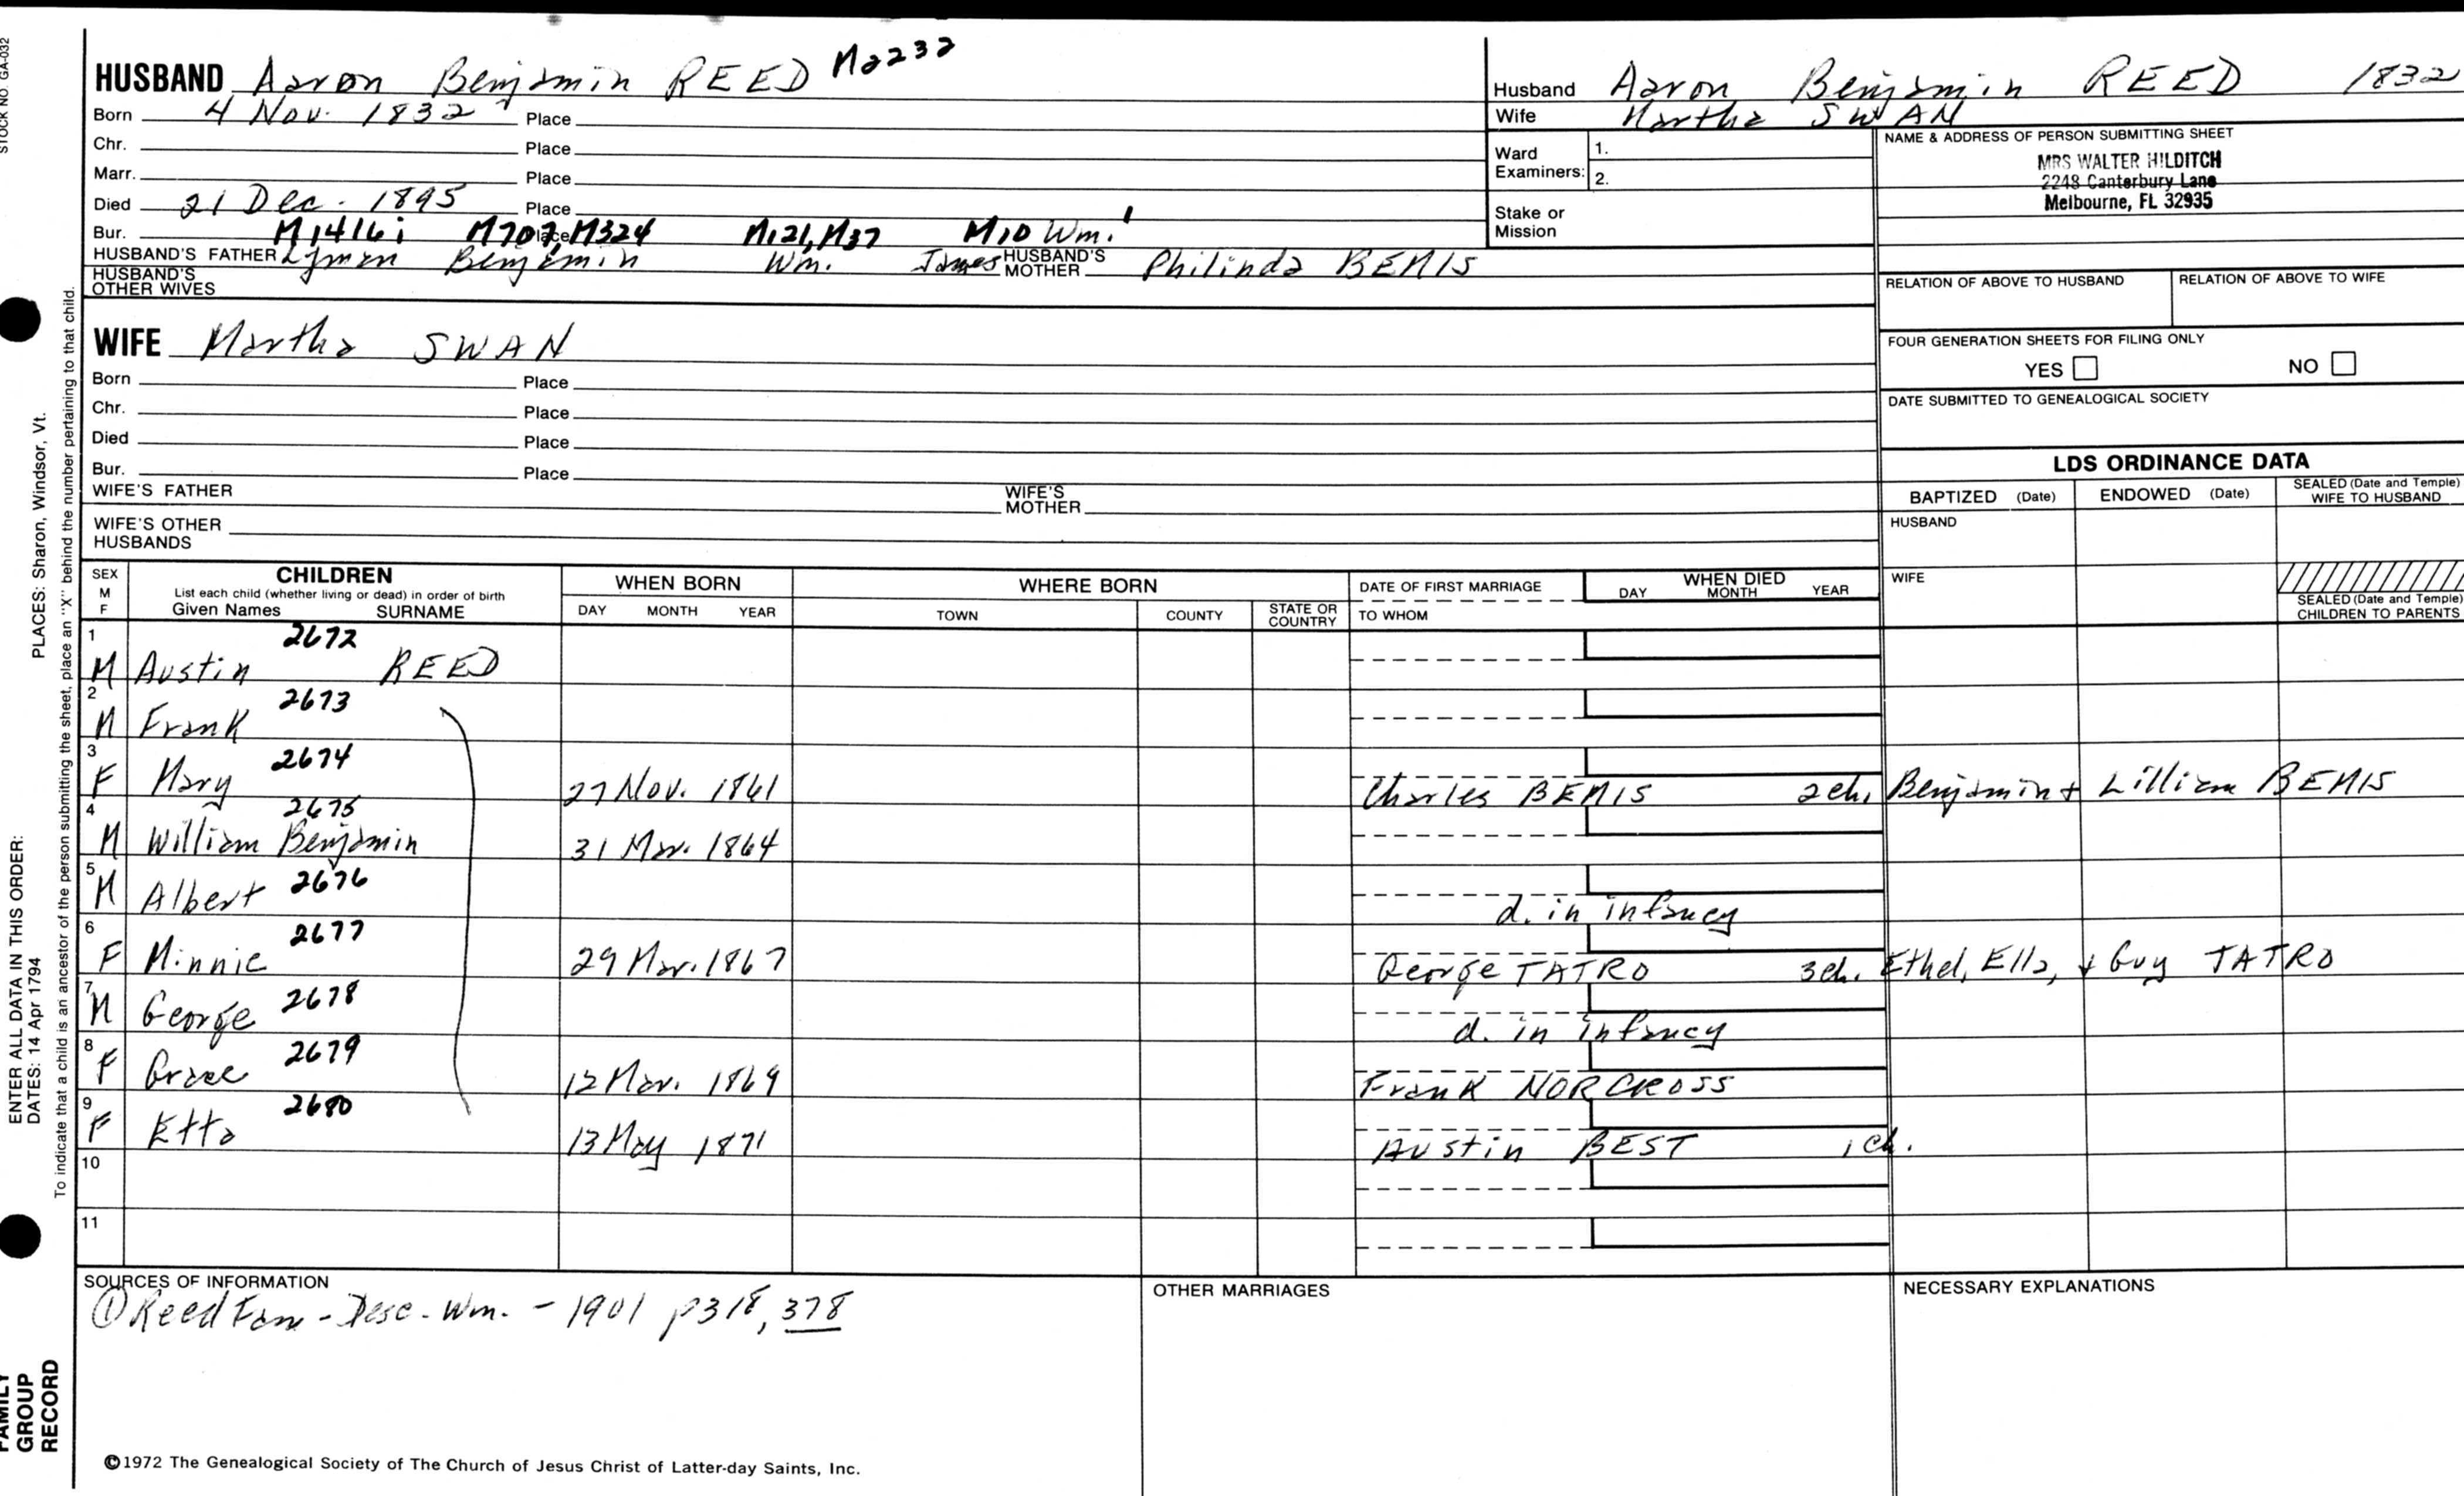 STOCK NO. GA-032
HUSBAND Aaron Benjamin REED M2232
Born 4 Nov. 1832 Place
Chr. Place
Marr. Place
Died 21 Dec. 1895 Place
Bur. Place M1416i M707, M324 M121, M37 M10 Wm.1
HUSBAND'S FATHER Lyman Benjamin Wm. James HUSBAND'S MOTHER Philinda BEMIS
HUSBAND'S OTHER WIVES
WIFE Martha SWAN
Born Place
Chr. Place
Died Place
Bur. Place
WIFE'S FATHER WIFE'S MOTHER
WIFE'S OTHER HUSBANDS
Husband Aaron Benjamin REED 1832
Wife Martha SWAN
Ward Examiners: 1.
2.
Stake or Mission
NAME & ADDRESS OF PERSON SUBMITTING SHEET
MRS WALTER HILDITCH
2248 Canterbury Lane
Melbourne, FL 32935
RELATION OF ABOVE TO HUSBAND RELATION OF ABOVE TO WIFE
FOUR GENERATION SHEETS FOR FILING ONLY
YES NO
DATE SUBMITTED TO GENEALOGICAL SOCIETY
LDS ORDINANCE DATA
BAPTIZED (Date) ENDOWED (Date) SEALED (Date and Temple) WIFE TO HUSBAND
HUSBAND
WIFE
SEALED (Date and Temple) CHILDREN TO PARENTS
SEX M F
CHILDREN
List each child (whether living or dead) in order of birth
Given Names SURNAME
WHEN BORN
DAY MONTH YEAR
WHERE BORN
TOWN COUNTY STATE OR COUNTRY
DATE OF FIRST MARRIAGE
TO WHOM
WHEN DIED
DAY MONTH YEAR
1 M Austin 2672 REED
2 M Frank 2673
3 F Mary 2674 27 Nov. 1861 Charles BEMIS 2ch. Benjamin + Lilliam BEMIS
4 M William Benjamin 2675 31 Mar. 1864
5 M Albert 2676 d. in infancy
6 F Minnie 2677 29 Mar. 1867 George TATRO 3ch. Ethel, Ella, + Guy TATRO
7 M George 2678 d. in infancy
8 F Grace 2679 12 Mar. 1869 Frank NORCROSS
9 F Etta 2680 13 May 1871 Austin BEST 1ch.
10
11
SOURCES OF INFORMATION
① Reed Fam - Desc. Wm. - 1901 p318, 378
OTHER MARRIAGES
NECESSARY EXPLANATIONS
©1972 The Genealogical Society of The Church of Jesus Christ of Latter-day Saints, Inc.
ENTER ALL DATA IN THIS ORDER:
DATES: 14 Apr 1794
PLACES: Sharon, Windsor, Vt.
To indicate that a child is an ancestor of the person submitting the sheet, place an "X" behind the number pertaining to that child.
FAMILY
GROUP
RECORD